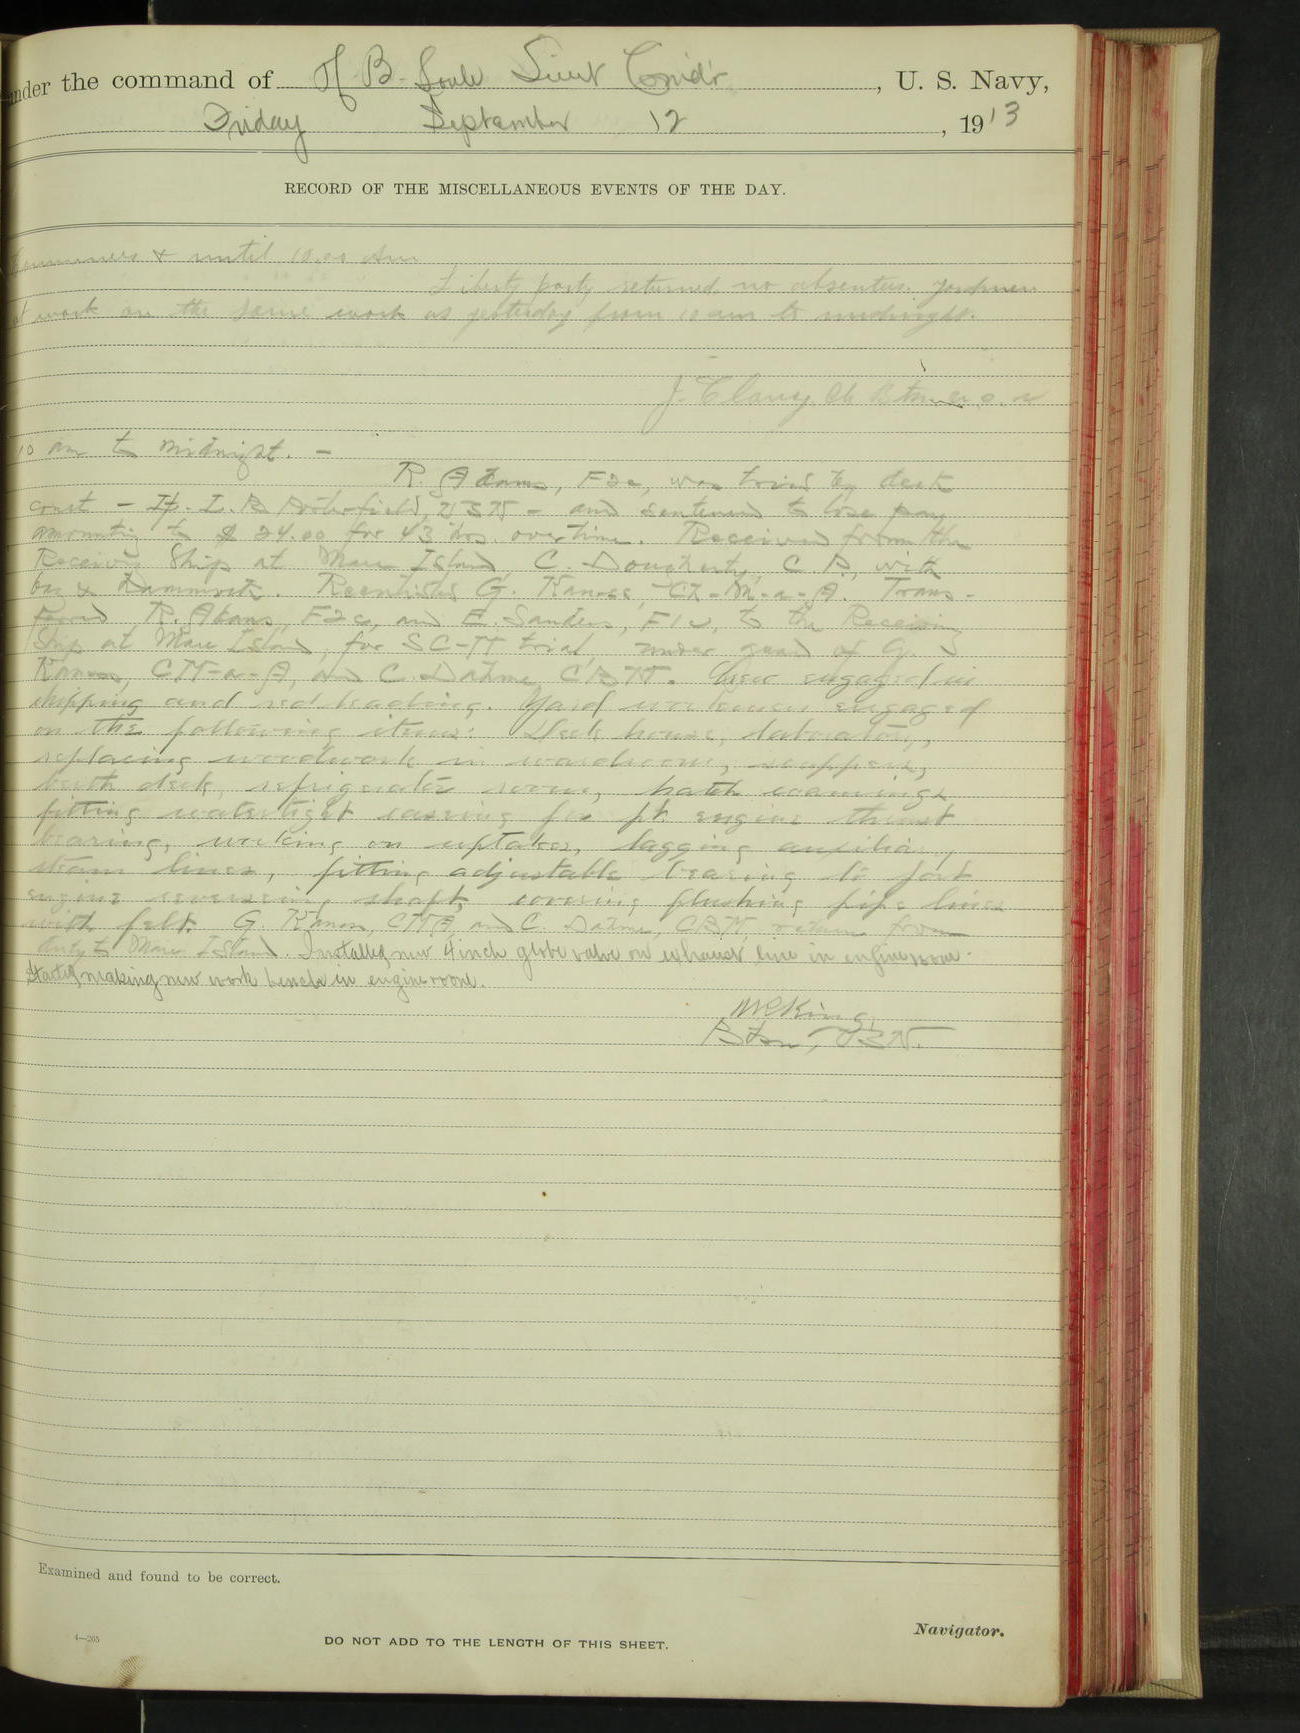 under the command of H. B. Soule Lieut Comdr, U. S. Navy,
Friday September 12, 1913
RECORD OF THE MISCELLANEOUS EVENTS OF THE DAY.
& until 10.00 Am
Liberty party returned no absentees. yardmen
at work on the same work as yesterday from 10 am to midnight.
J. Clancy Ch Btsn U.S.N
10 am to midnight. —
R. Adams, F2c, was tried by deck
court — — and sentenced to lose pay
amounting to $24.00 for 43 hrs. overtime. Received from the
Receiving Ship at Mare Island, C. Dougherty, C.P., with
bag & hammock. Reenlisted G. Kanass, Ch-M-a-A. Trans-
ferred R. Adams, F2c, and E. Sanders, F1c, to the Receiving
Ship at Mare Island, for SC-M trial, under guard of G.
Kanass, CM-a-A, and C. Dahme, CBM. Crew engaged in
chipping and red leading. Yard workmen engaged
on the following items: Deck house, laboratory,
replacing woodwork in wardroom, scuppers,
berth deck, refrigerator room, hatch coamings
fitting watertight casing for pt. engine thrust
bearing, working on uptakes, lagging auxiliary
steam lines, fitting adjustable bearing to port
engine reversing shaft, covering flushing pipe lines
with felt. G. Kanass, CMAA, and C. Dahme, CBM, return from
duty to Mare Island. Installed new 4 inch globe valve on exhaust line in engine room.
Started making new work bench in engine room.
McKing,
Btsn, USN.
Examined and found to be correct.
4—265
DO NOT ADD TO THE LENGTH OF THIS SHEET.
Navigator.